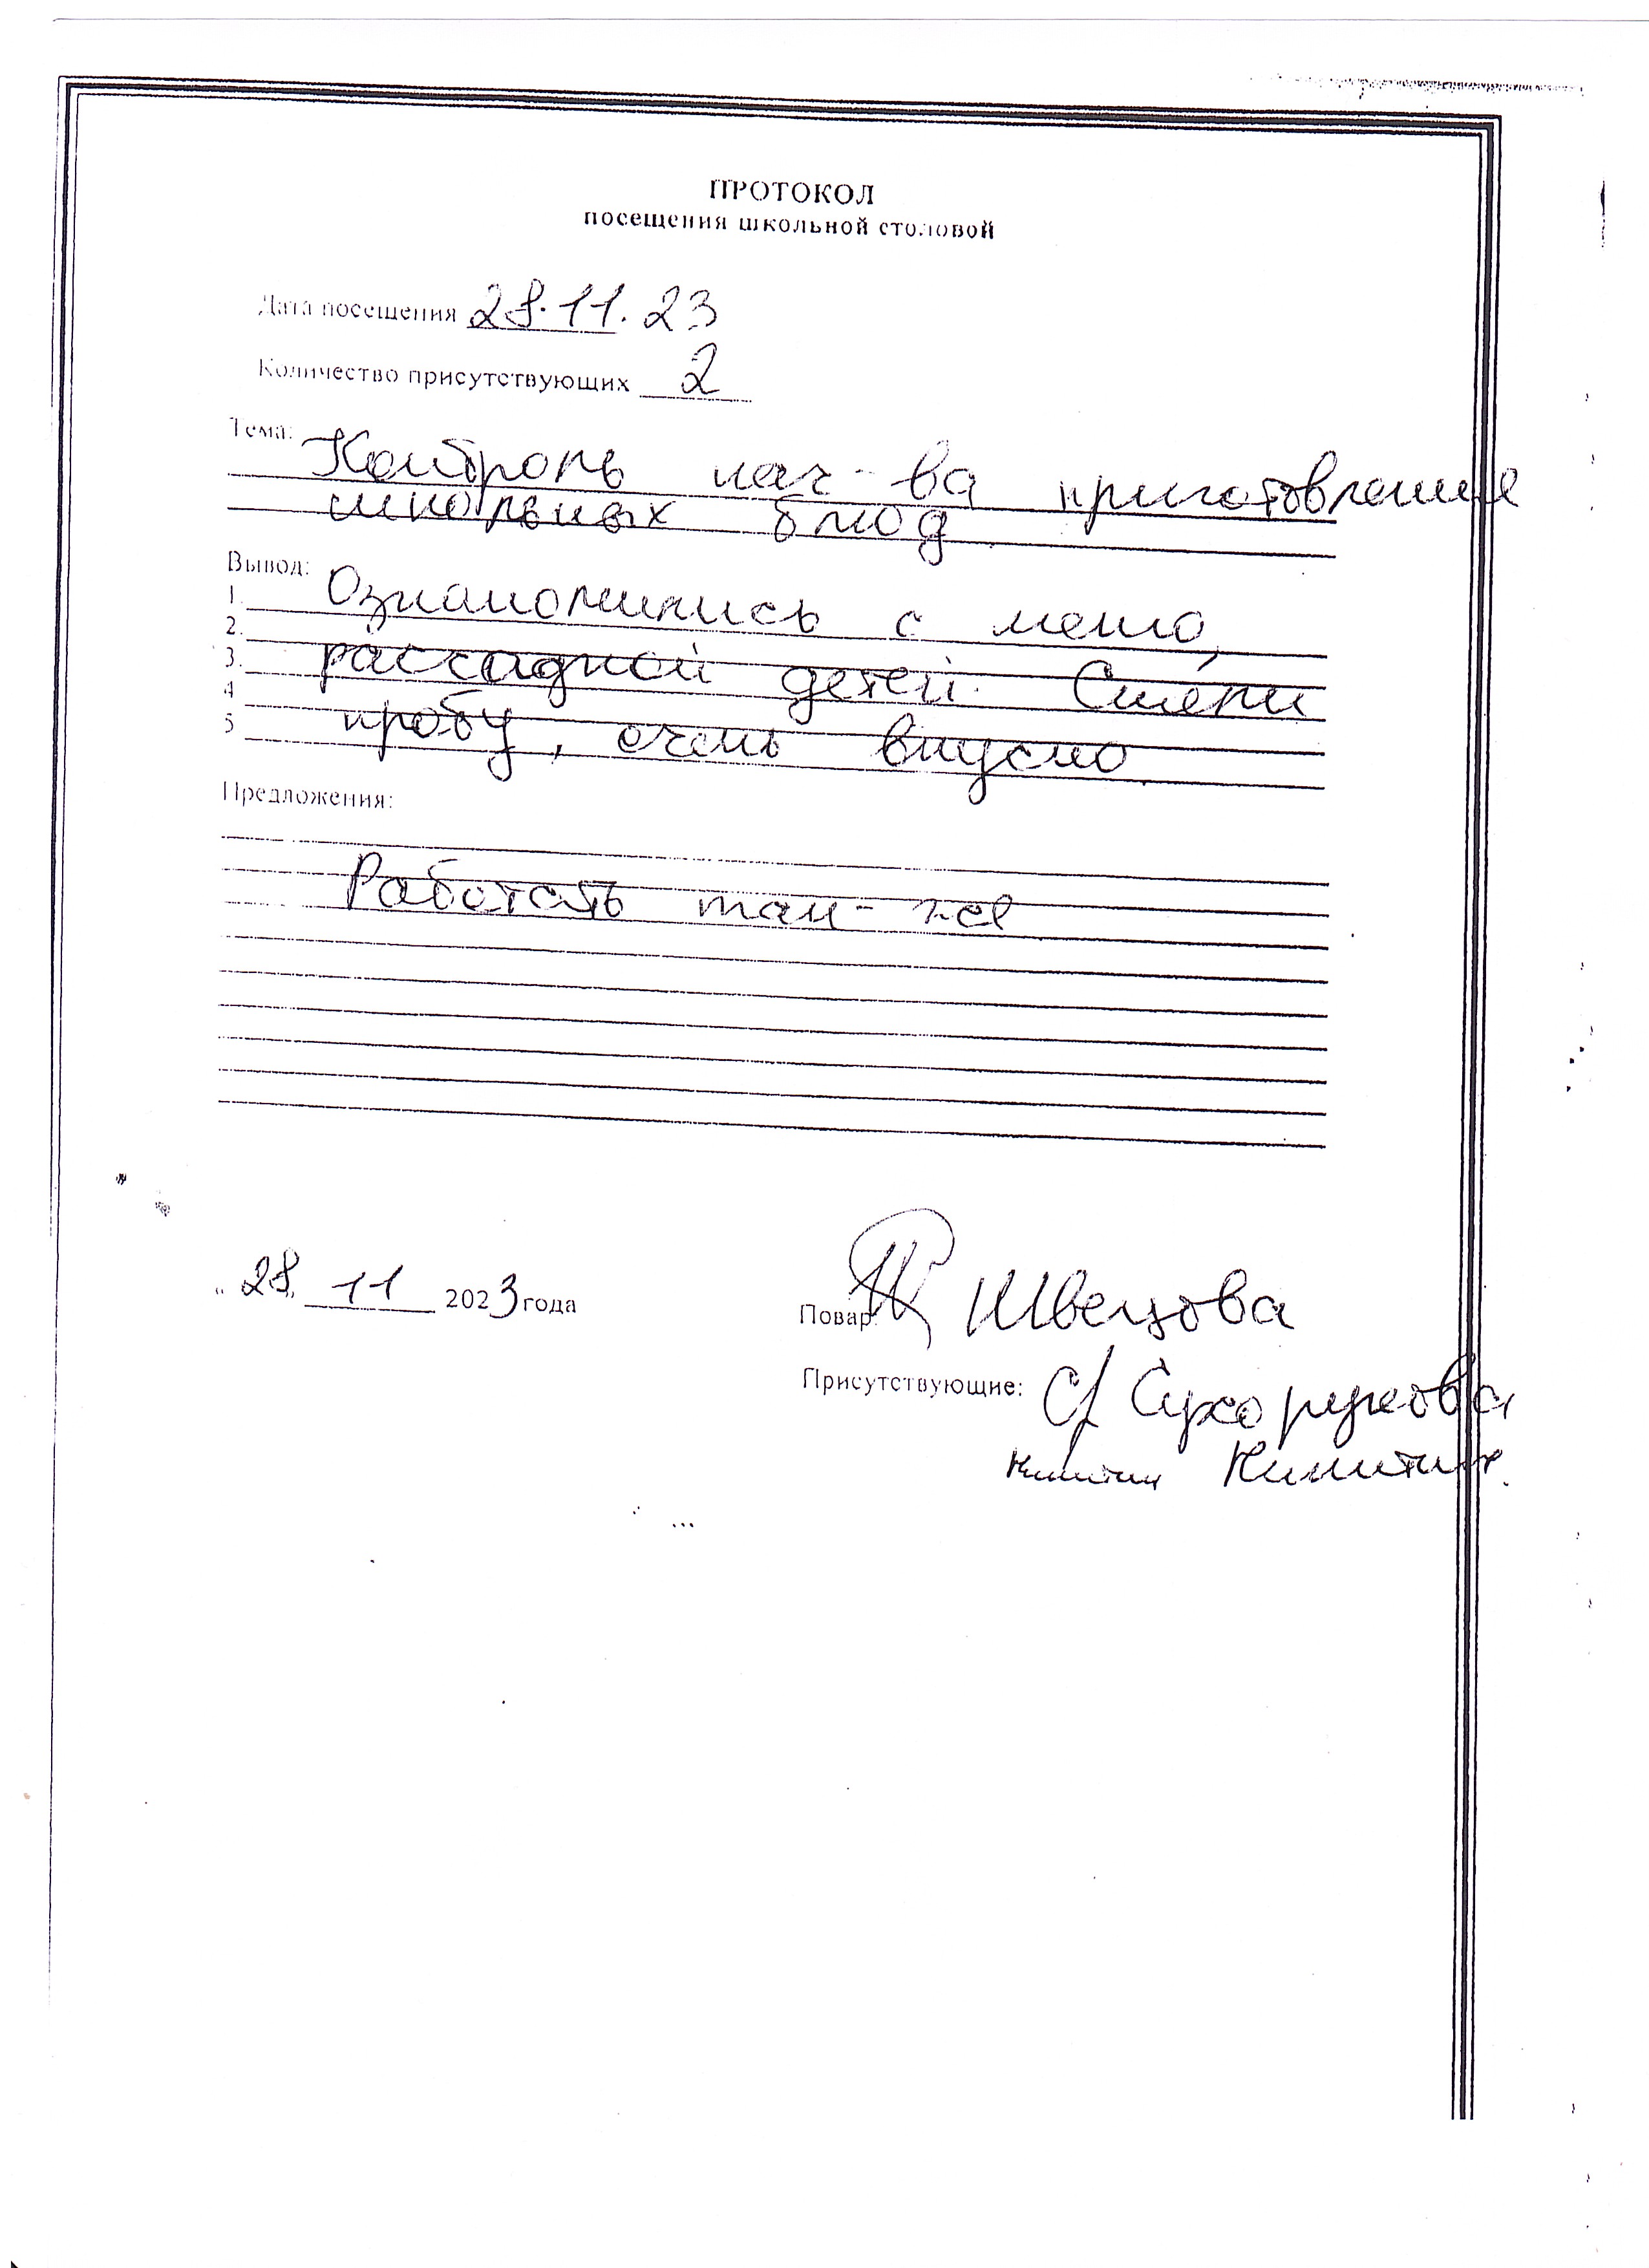 ПРОТОКОЛ
посещения школьной столовой
Дата посещения 28.11.23
Количество присутствующих 2
Тема:
Контроль кач-ва приготовления
школьных блюд
Вывод:
1. Ознакомились с меню,
2.
3. рассадкой детей. Сняли
4
5 пробу, очень вкусно
Предложения:
Работать так-же
"28" 11 2023 года
Повар: Швецова
Присутствующие: Сухорукова
Никитин Никитин.